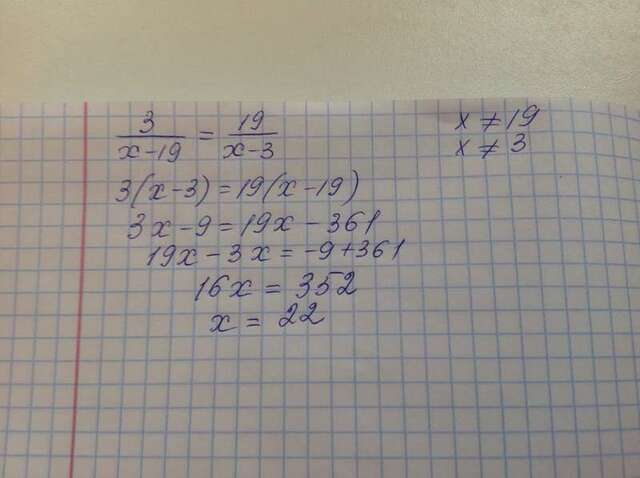 3/(x-19) = 19/(x-3)
x ≠ 19
x ≠ 3
3(x-3) = 19(x-19)
3x-9 = 19x-361
19x-3x = -9+361
16x = 352
x = 22